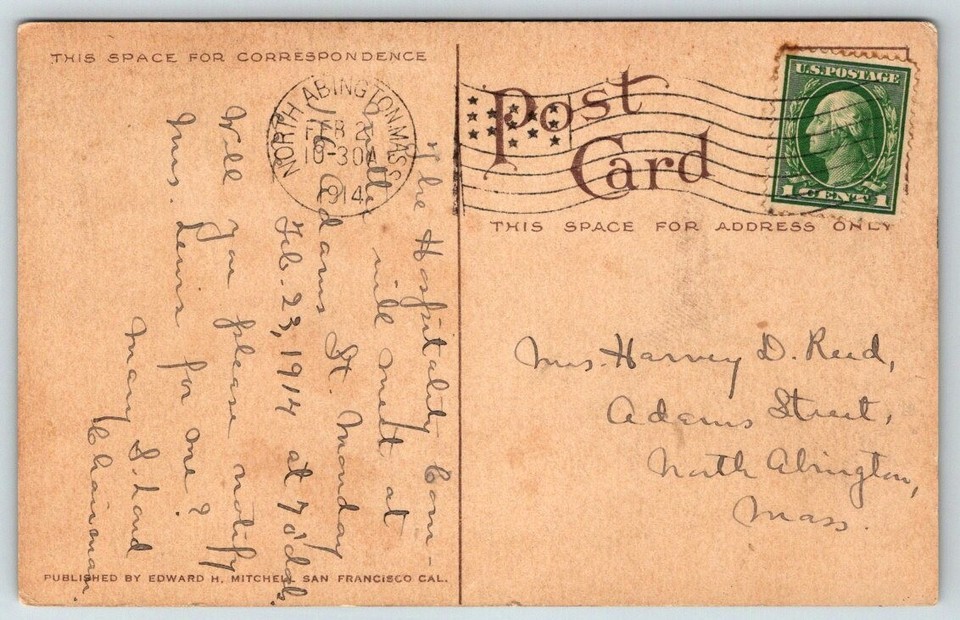 THIS SPACE FOR CORRESPONDENCE
NORTH ABINGTON, MASS.
FEB 2
10-30A
1914
Post
Card
U.S. POSTAGE
1 CENT 1
THIS SPACE FOR ADDRESS ONLY
The Hospitality Com-
mittee will meet at
116 Adams St. Monday
Feb. 23, 1914 at 7 o'clock.
Will you please notify
Mrs. Lewis for me?
Mary S. Lord
Chairman.
Mrs. Harvey D. Reed,
Adams Street,
North Abington,
Mass.
PUBLISHED BY EDWARD H. MITCHELL SAN FRANCISCO CAL.